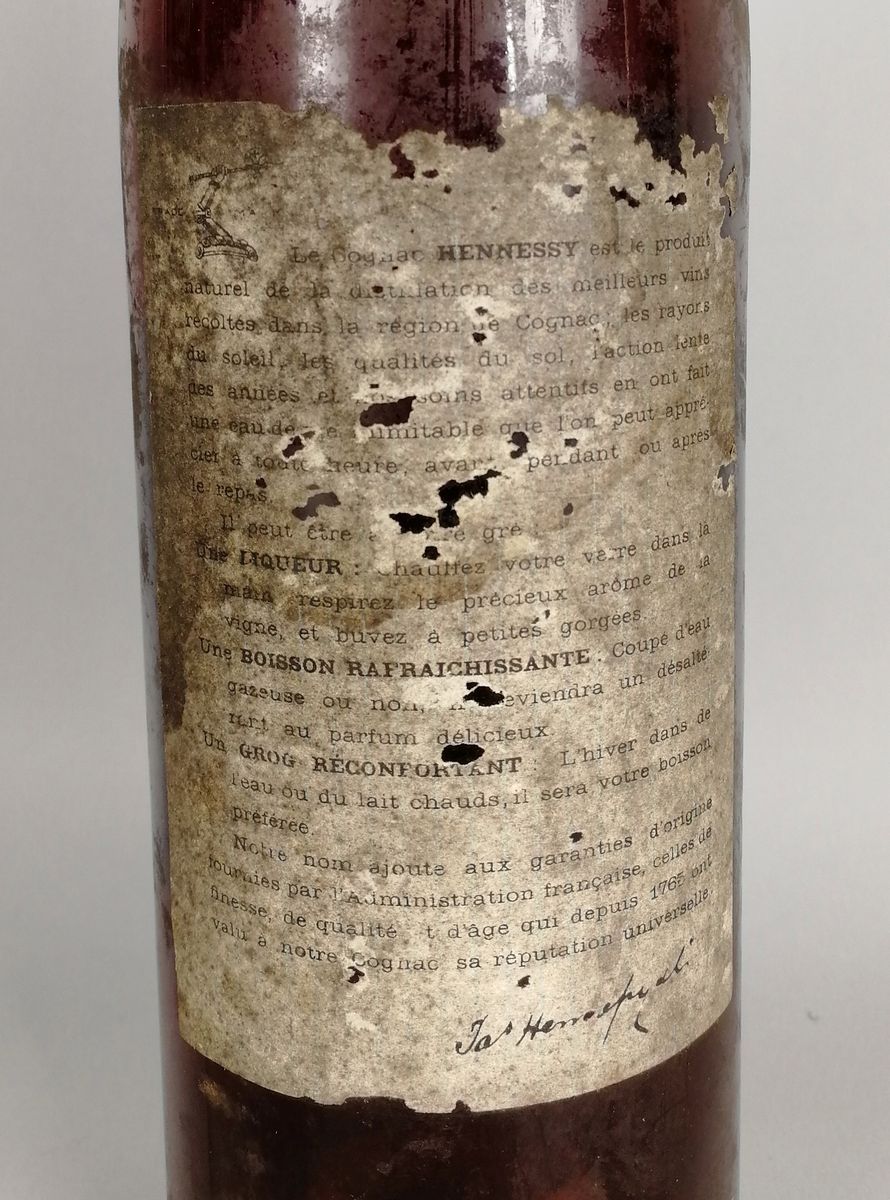 Le Cognac HENNESSY est le produit
naturel de la distillation des meilleurs vins
récoltés dans la région de Cognac; les rayons
du soleil, les qualités du sol, l'action lente
des années et soins attentifs en ont fait
une eau de inimitable que l'on peut appré-
cier à toute heure, avant, pendant ou après
le repas.
Il peut être à gré :
Une LIQUEUR : Chauffez votre verre dans la
main respirez le précieux arôme de la
vigne, et buvez à petites gorgées.
Une BOISSON RAFRAICHISSANTE : Coupé d'eau
gazeuse ou non, il deviendra un désalté-
rant au parfum délicieux.
Un GROG RÉCONFORTANT : L'hiver dans de
l'eau ou du lait chauds, il sera votre boisson
préférée.
Notre nom ajoute aux garanties d'origine
fournies par l'Administration française, celles de
finesse, de qualité et d'âge qui depuis 1765 ont
valu à notre Cognac sa réputation universelle.
Jas Hennessy & Co